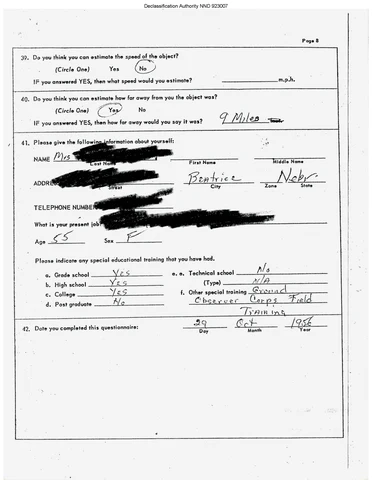 Declassification Authority NND 923007
Page 8
39. Do you think you can estimate the speed of the object?
(Circle One) Yes No
IF you answered YES, then what speed would you estimate? m.p.h.
40. Do you think you can estimate how far away from you the object was?
(Circle One) Yes No
IF you answered YES, then how far away would you say it was? 9 Miles
41. Please give the following information about yourself:
NAME Mrs
Last Name First Name Middle Name
ADDRESS Beatrice Nebr.
Street City Zone State
TELEPHONE NUMBER
What is your present job
Age 55 Sex F
Please indicate any special educational training that you have had.
a. Grade school Yes e. Technical school No
b. High school Yes (Type) N/A
c. College Yes f. Other special training Ground
d. Post graduate No Observer Corps Field
Training
42. Date you completed this questionnaire: 29 Oct 1956
Day Month Year